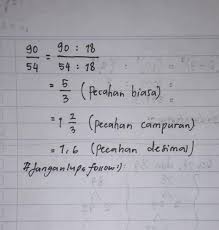 90/54 = 90 : 18 / 54 : 18
= 5/3 (Pecahan biasa)
= 1 2/3 (pecahan campuran)
= 1,6 (pecahan desimal)
#Janganlupa follow:)